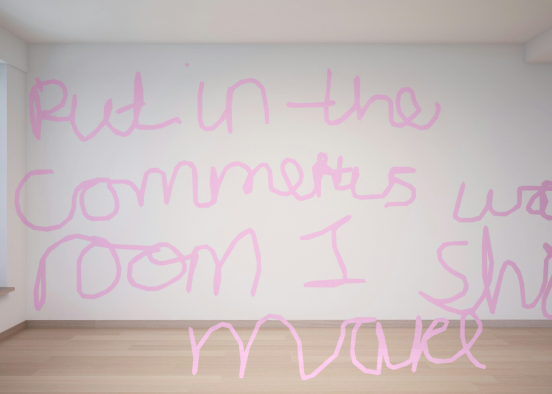 Put in the
commetts
room I
make